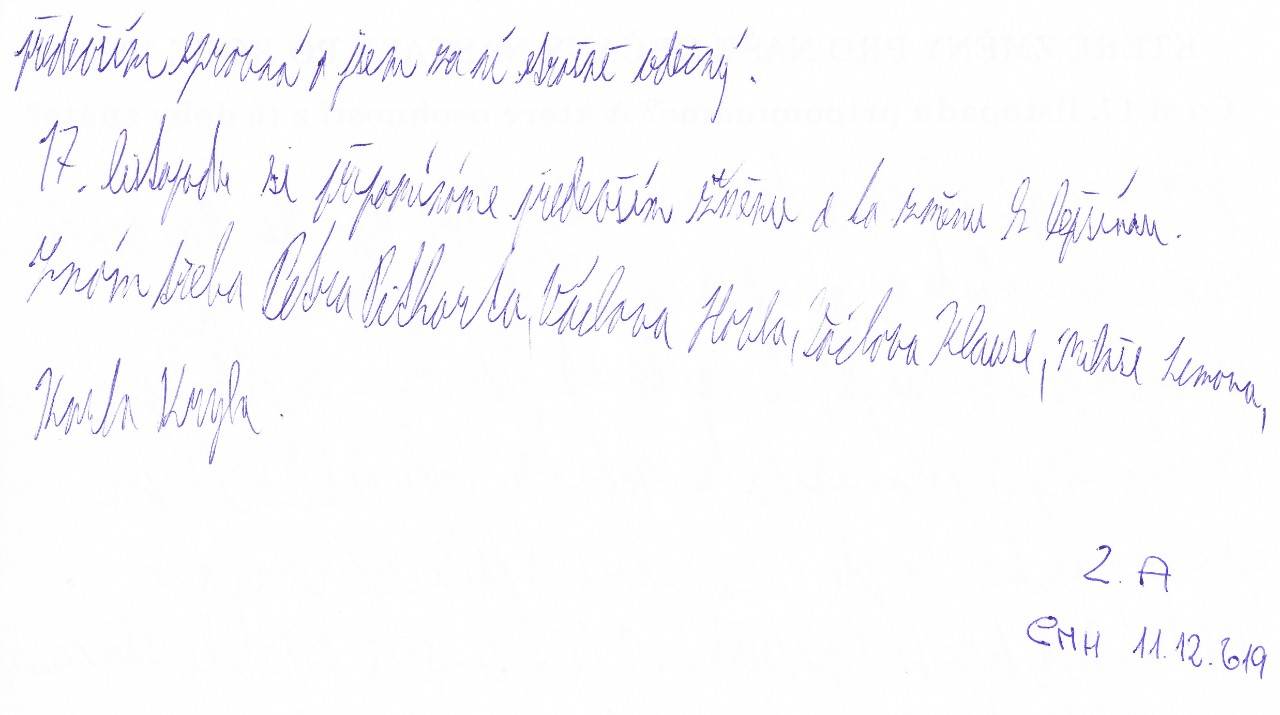 především správná a jsem za ní strašně vděčný.
17. listopadu si připomínáme především změnu a to změnu k lepšímu.
Znám třeba Petra Pitharta, Václava Havla, Václava Klause, Miloše Zemana,
Karla Kryla.
2. A
GMH 11.12.